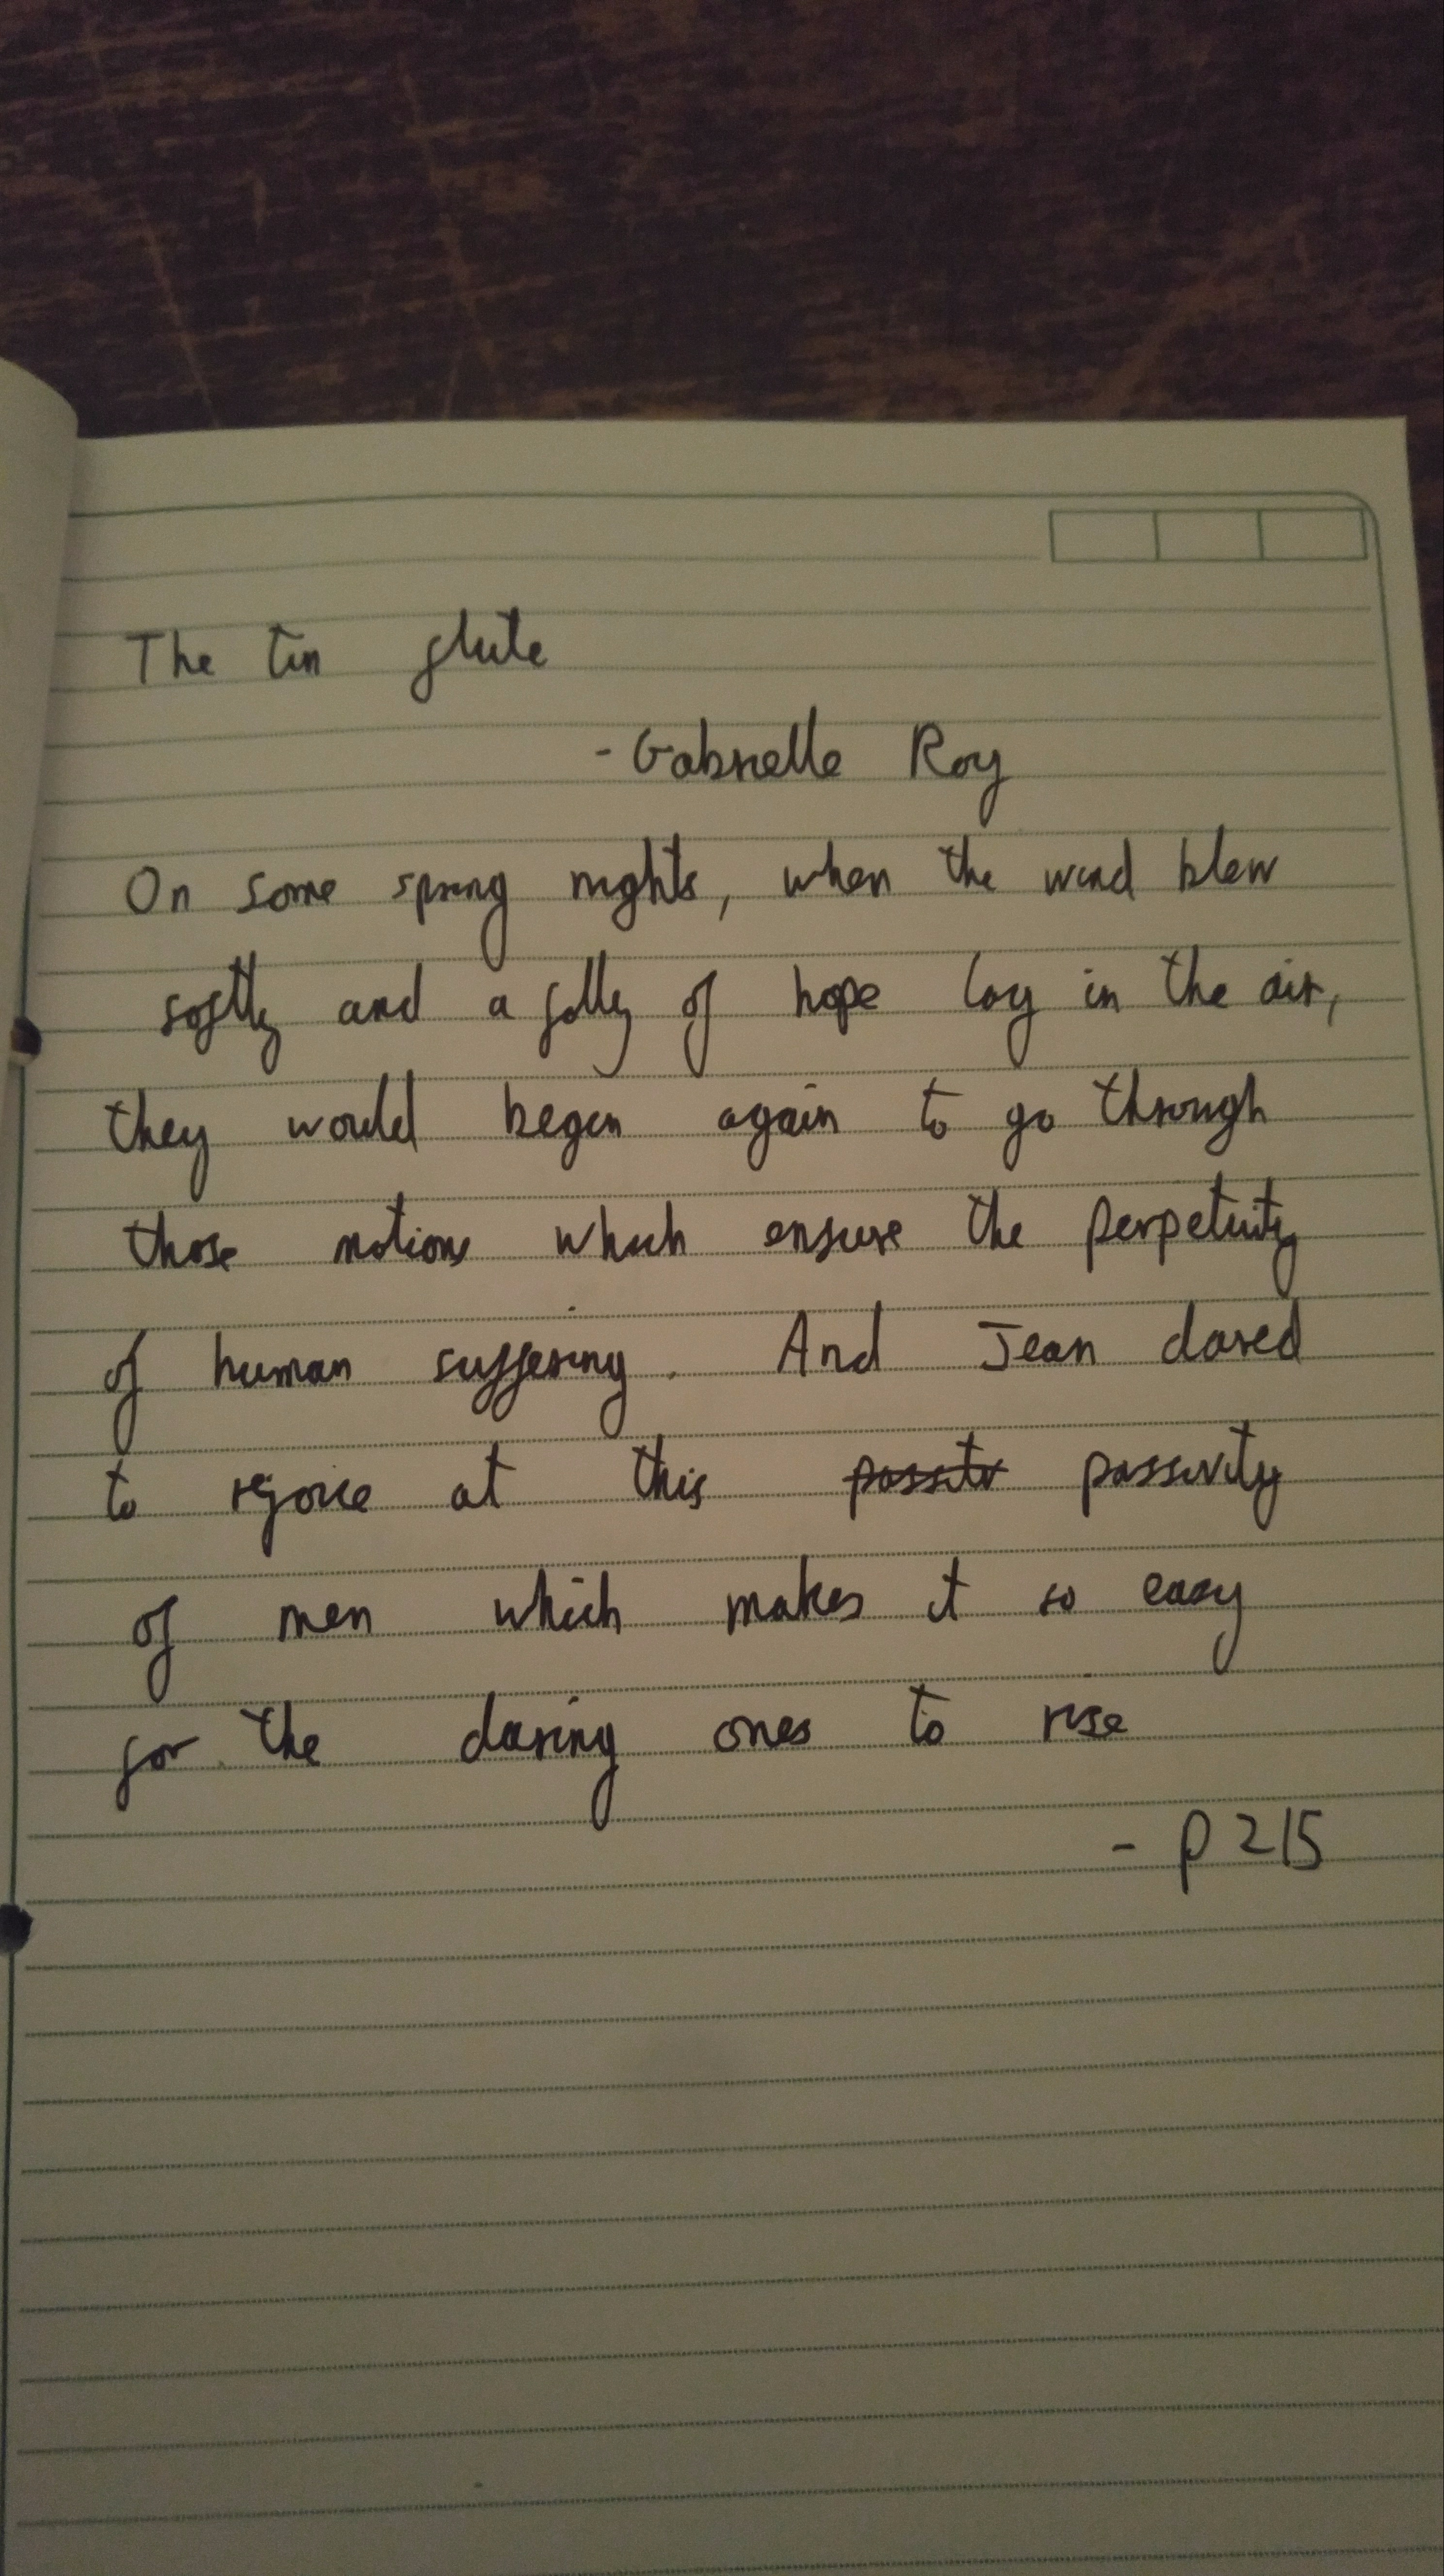 The tin flute
- Gabrielle Roy
On some spring nights, when the wind blew
softly and a folly of hope lay in the air,
they would begin again to go through
those motions which ensure the perpetuity
of human suffering. And Jean dared
to rejoice at this passity passivity
of men which makes it so easy
for the daring ones to rise
- p 215